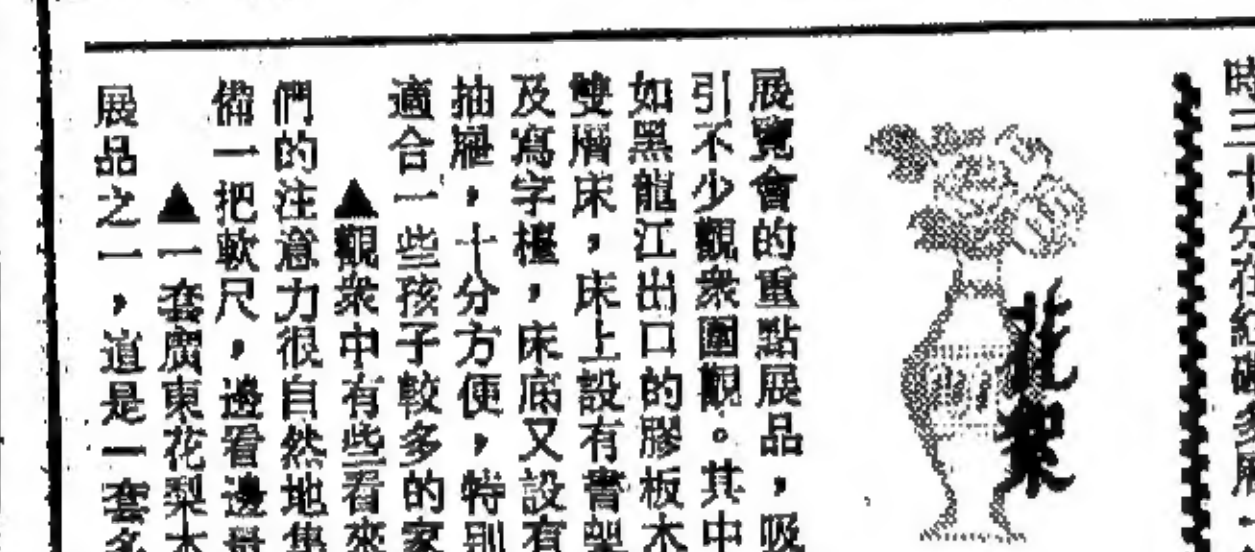 時三十分在紅磡多層
花絮
展覽會的重點展品，吸
引不少觀衆圍觀。其中
如黑龍江出口的膠板木
雙層床，床上設有書架
及寫字檯，床底又設有
抽屜，十分方便，特別
適合一些孩子較多的家
▲觀衆中有些看來
們的注意力很自然地集
備一把軟尺，邊看邊量
▲一套廣東花梨木
展品之一，這是一套多